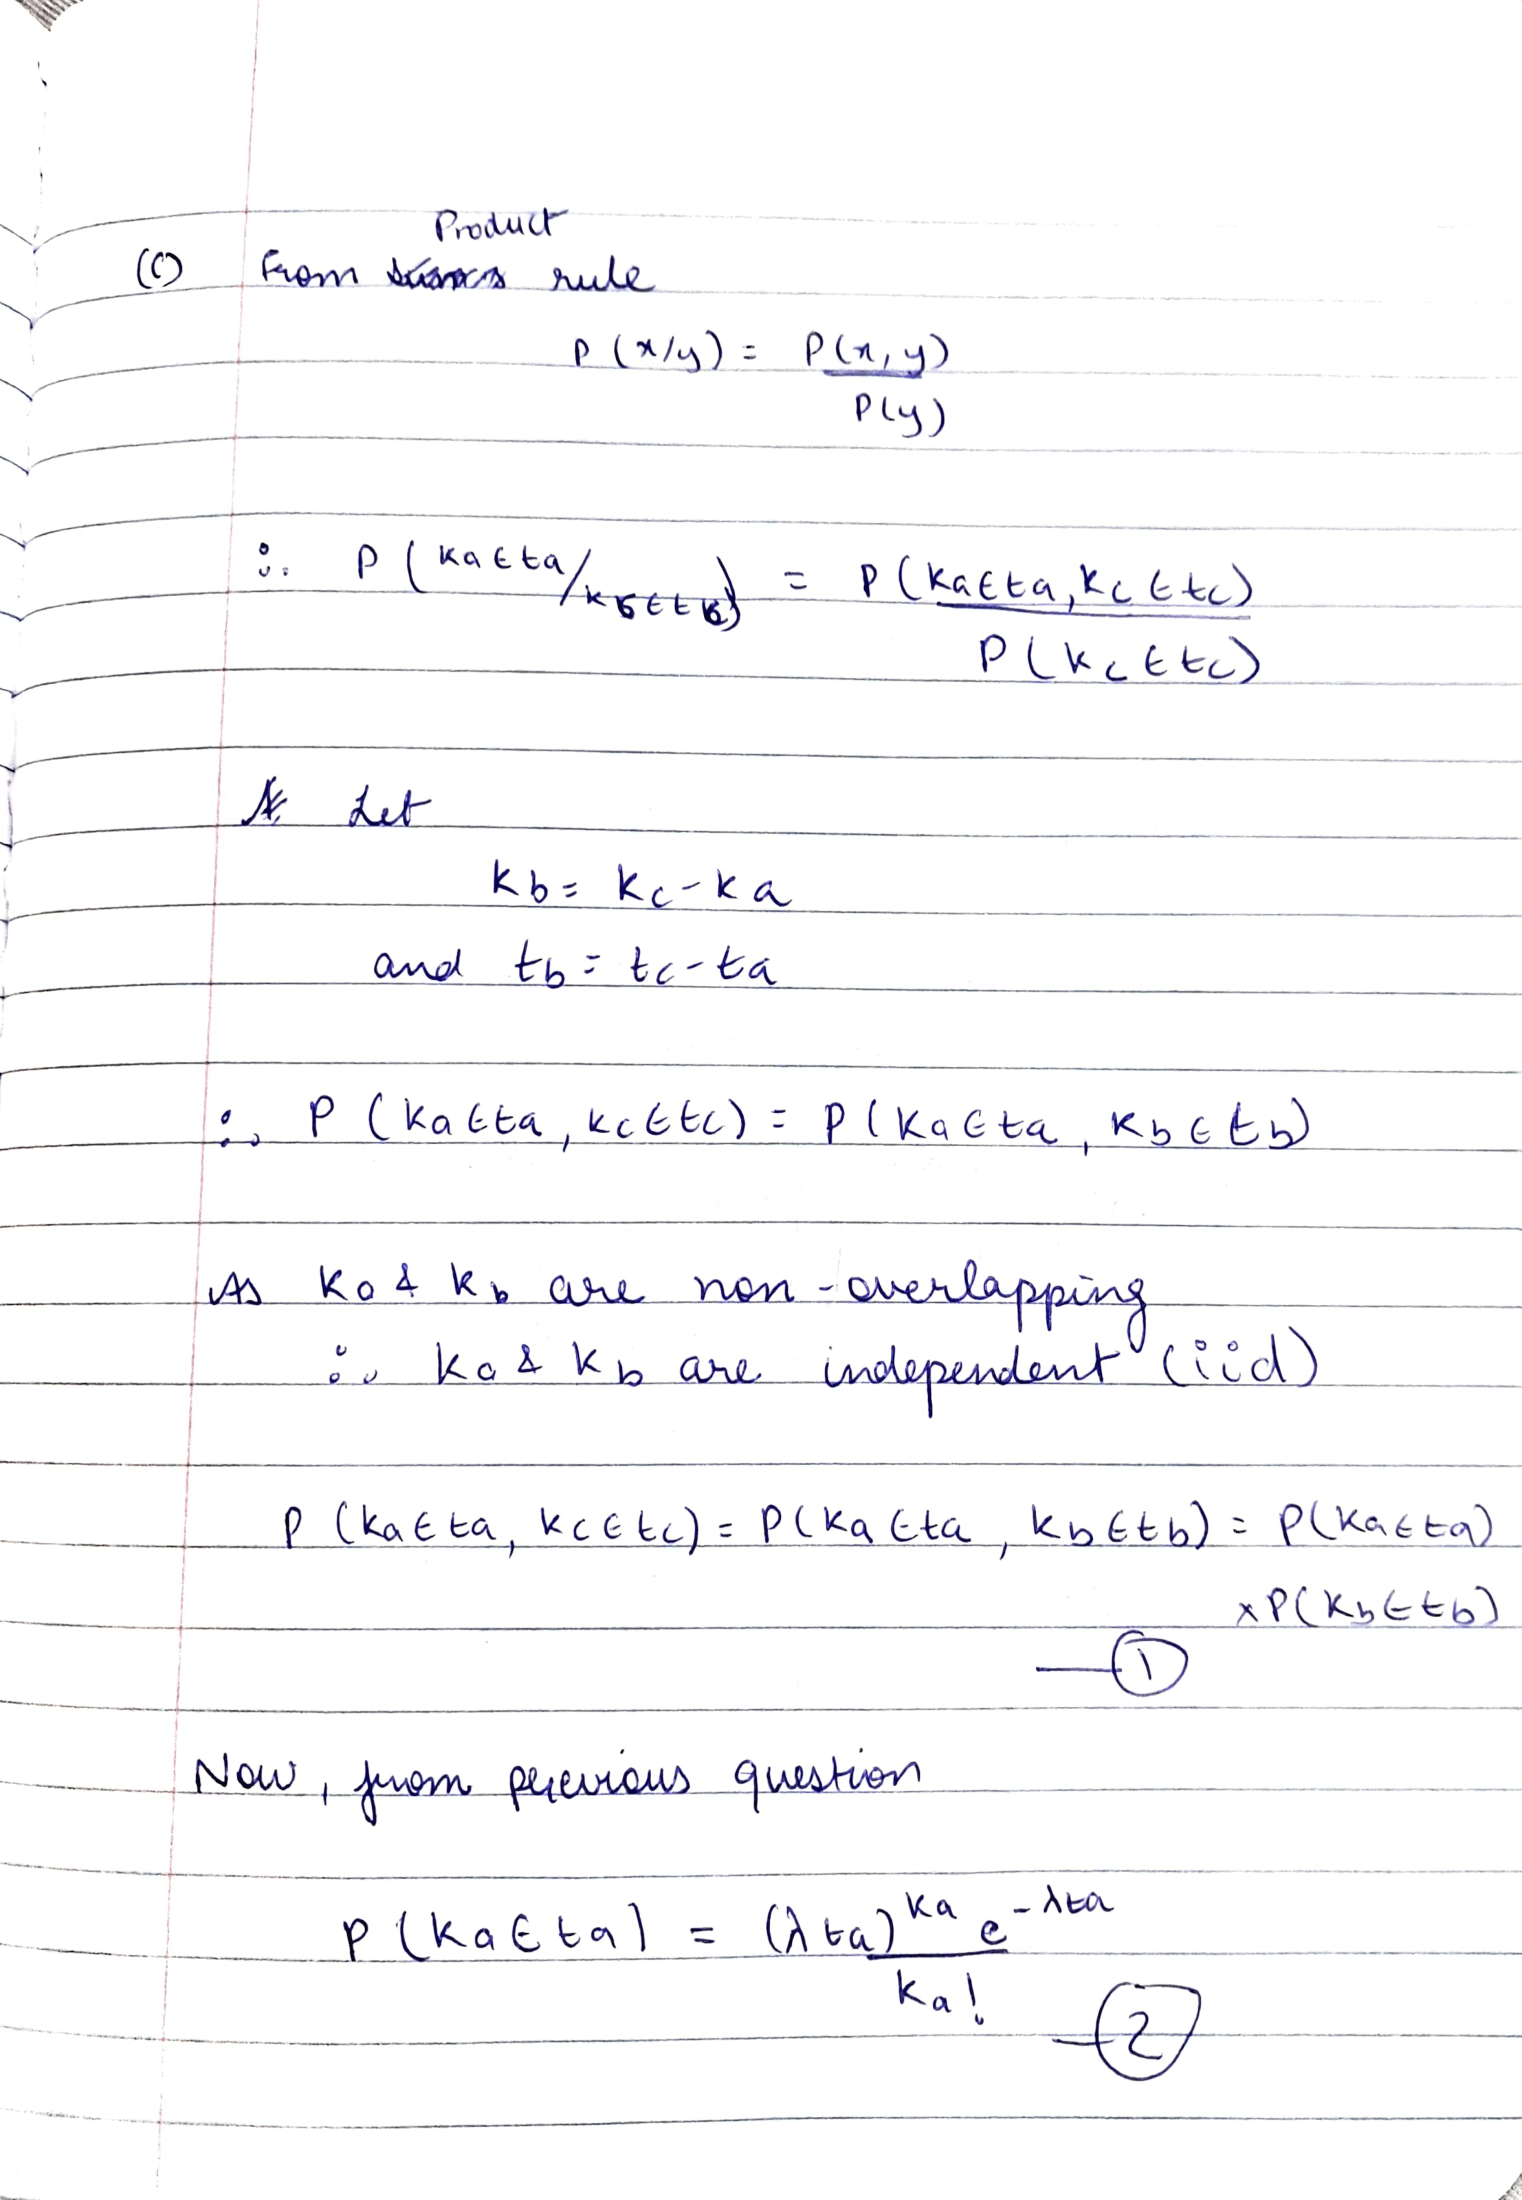 Product
(c) From rule
P(x/y) = P(x,y)
P(y)
∴ P(ka∈ta/kc∈tc) = P(ka∈ta, kc∈tc)
P(kc∈tc)
Let
kb = kc-ka
and tb = tc-ta
∴ P(ka∈ta, kc∈tc) = P(ka∈ta, kb∈tb)
As ka & kb are non-overlapping
∴ ka & kb are independent (iid)
P(ka∈ta, kc∈tc) = P(ka∈ta, kb∈tb) = P(ka∈ta)
×P(kb∈tb)
—①
Now, from previous question
P(ka∈ta) = (λta)^ka e^-λta
ka!
—②